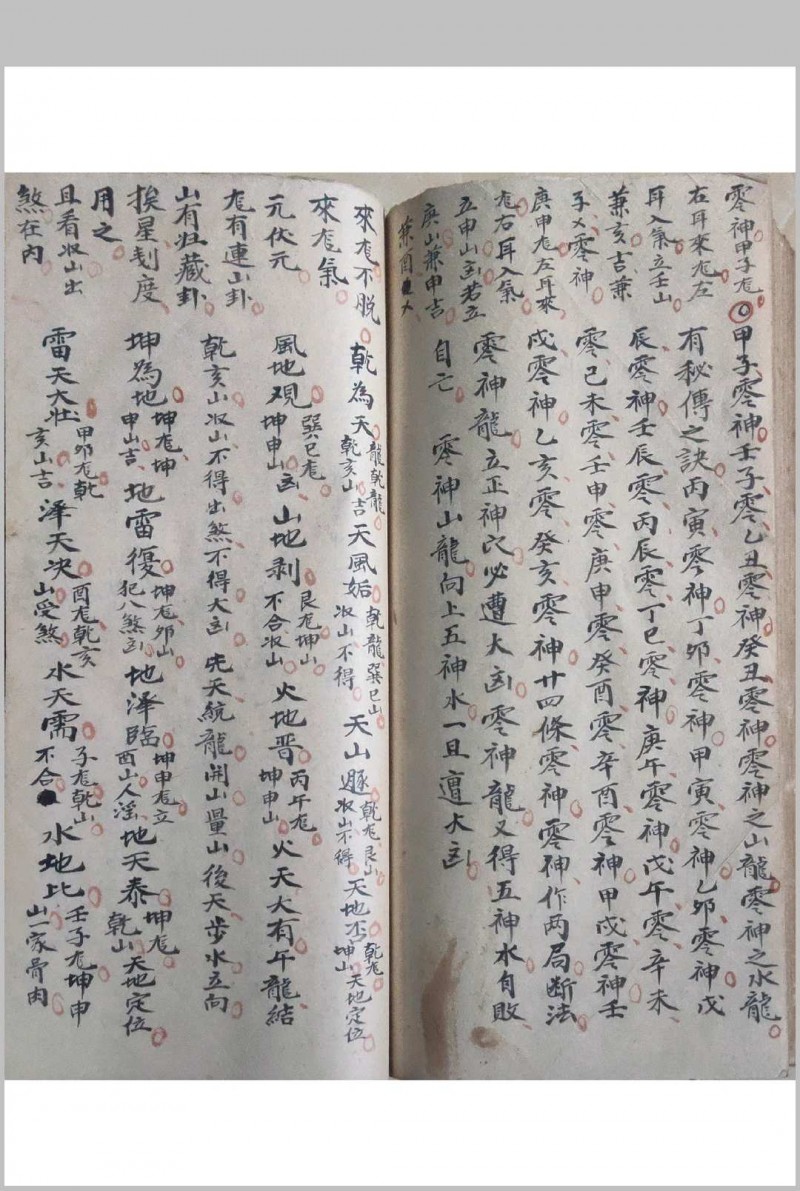 零神甲子龙
右耳來龙左
耳入氣立壬山
兼亥吉兼
子ㄨ零神
庚申龙左耳來
龙右耳入氣
立申山凶若立
庚山兼申吉
兼酉ㄨ
甲子零神壬子零乙丑零神癸丑零神零神之山龍零神之水龍
有秘傳之訣丙寅零神丁卯零神甲寅零神乙卯零神戊
辰零神壬辰零丙辰零丁巳零神庚午零神戊午零辛未
零己未零壬申零庚申零癸酉零辛酉零神甲戌零神壬
戌零神乙亥零癸亥零神廿四條零神零神作两局断法
零神龍立正神穴必遭大凶零神龍又得五神水自敗
自亡 零神山龍向上五神水一旦遭大凶
來龙不脱
來龙氣
元伏元
龙有連山卦
山有归藏卦
挨星刦度
用之
且看收山出
煞在内
乾為天龍乾龍乾亥山吉天風姤乾龍巽巳山收山不得天山遯乾龙艮山收山不得天地否乾龙坤山天地定位
風地观巽巳龙坤申山凶山地剥艮龙坤山不合收山火地晋丙午龙坤申山火天大有午龍結
乾亥山收山不得出煞不得大凶先天統龍開山量山後天步水立向
坤為地坤龙坤申山吉地雷復坤龙卯山犯八煞凶地泽臨坤申龙立酉山人淫地天泰坤龙乾山天地定位
雷天大壮甲卯龙乾亥山吉泽天夬酉龙乾亥山受煞水天需子龙乾山不合水地比壬子龙坤申山一家骨肉